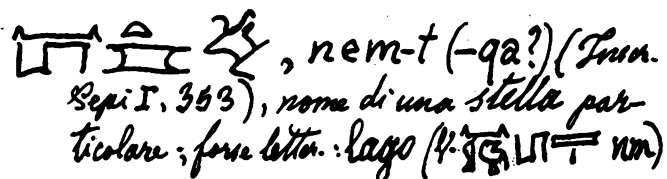 , nem-t (-qa?) (Inscr.
Sepi I, 353), nome di una stella par-
ticolare; forse letter.: lago (V. nm)